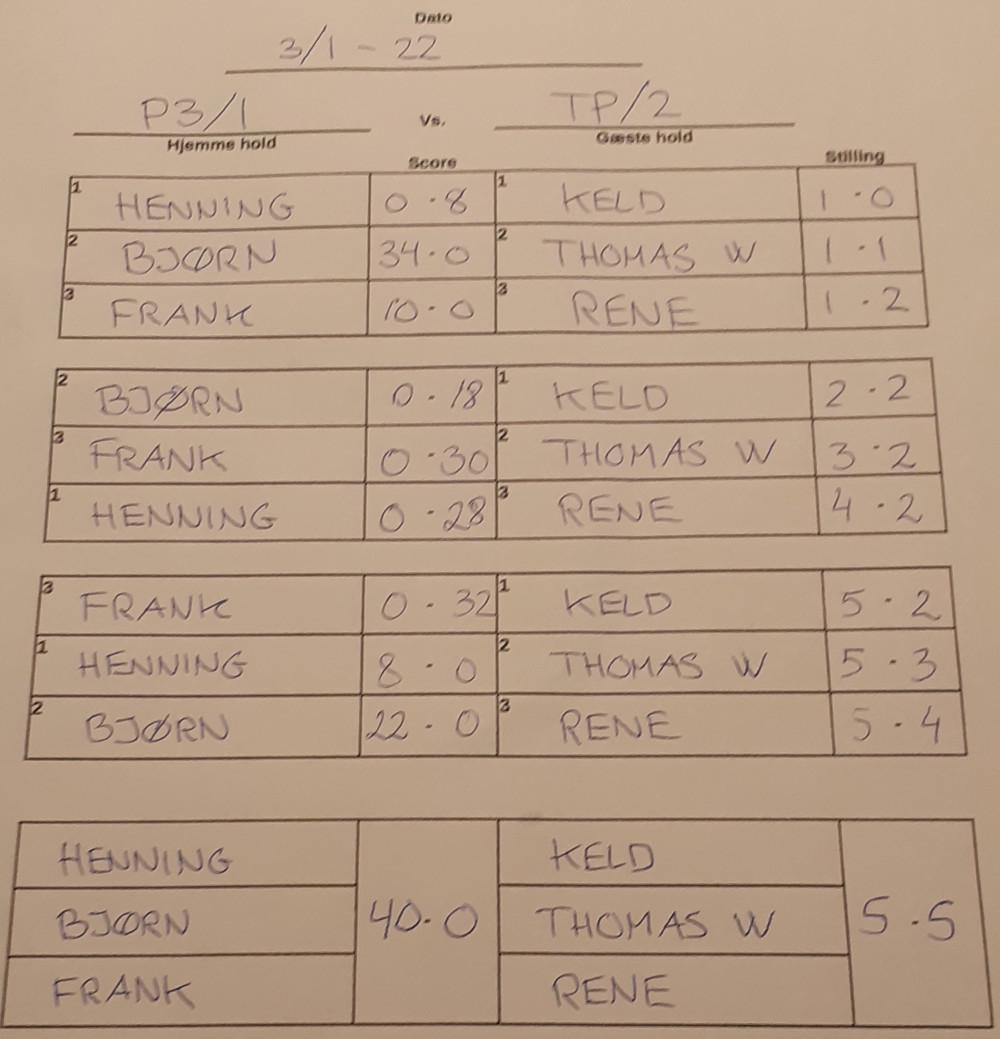 Dato
3/1 - 22
P3/1 Vs. TP/2
Hjemme hold Gæste hold
Score Stilling
1 HENNING 0 · 8 1 KELD 1 · 0
2 BJØRN 34 · 0 2 THOMAS W 1 · 1
3 FRANK 10 · 0 3 RENE 1 · 2
2 BJØRN 0 · 18 1 KELD 2 · 2
3 FRANK 0 · 30 2 THOMAS W 3 · 2
1 HENNING 0 · 28 3 RENE 4 · 2
3 FRANK 0 · 32 1 KELD 5 · 2
1 HENNING 8 · 0 2 THOMAS W 5 · 3
2 BJØRN 22 · 0 3 RENE 5 · 4
HENNING KELD
BJØRN 40 · 0 THOMAS W 5 · 5
FRANK RENE